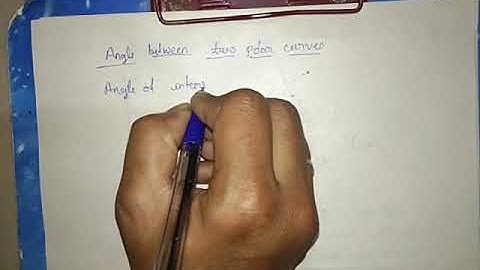 Angle between two polar curves
Angle of inters